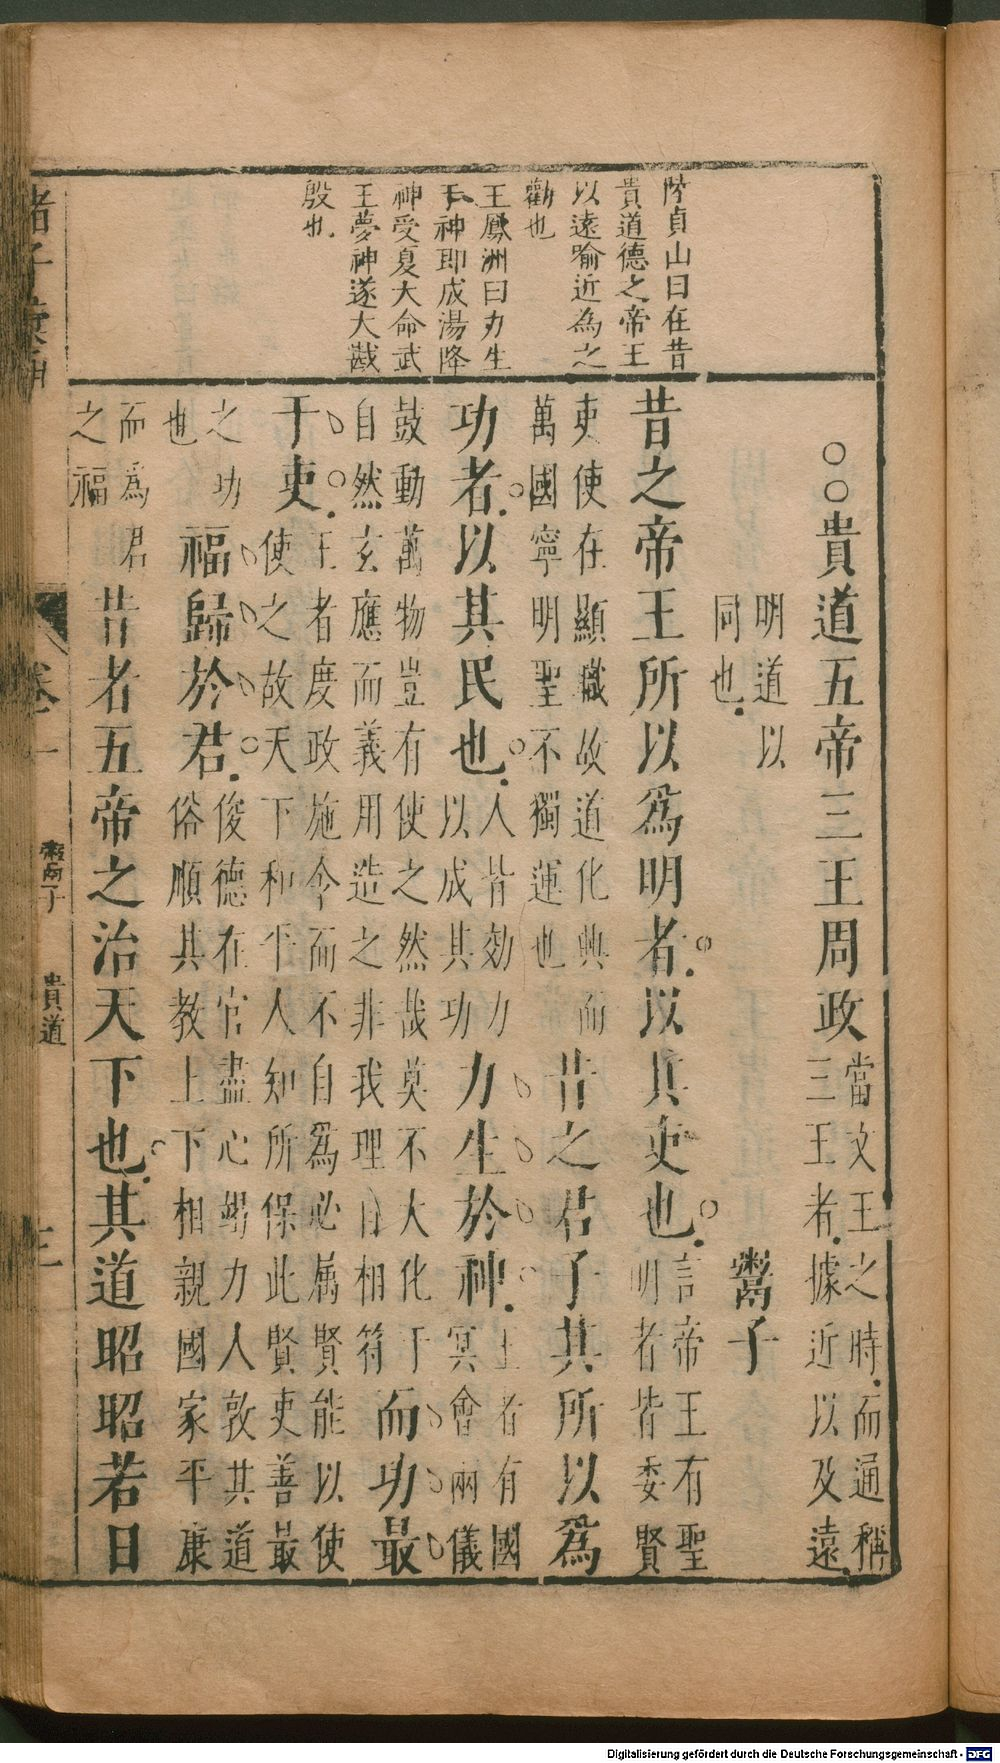 陸貞山曰在昔
貴道德之帝王
以遠喻近為之
勸也
王鳳洲曰力生
于神即成湯降
神受夏大命武
王夢神遂大戡
殷也
○○貴道五帝三王周政
當文王之時而通稱
三王者據近以及遠
明道以
同也
鬻子
昔之帝王所以爲明者以其吏也
言帝王有聖
明者皆委賢
吏使在顯職故道化典而
萬國寧明聖不獨運也
昔之君子其所以爲
功者以其民也
人皆効力
以成其功
力生於神
王者有國
冥會兩儀
鼓動萬物豈有使之然哉莫不大化于
自然玄應而義用造之非我理自相符
而功最
于吏
王者度政施令而不自爲必属賢能以使
使之故天下和平人知所保此賢吏善最
之功
也
福歸於君
俊德在官盡心竭力人敦其道
俗順其教上下相親國家平康
而爲君
之福
昔者五帝之治天下也其道昭昭若日
諸子彙函
卷一
鬻子
貴道
Digitalisierung gefördert durch die Deutsche Forschungsgemeinschaft - DFG